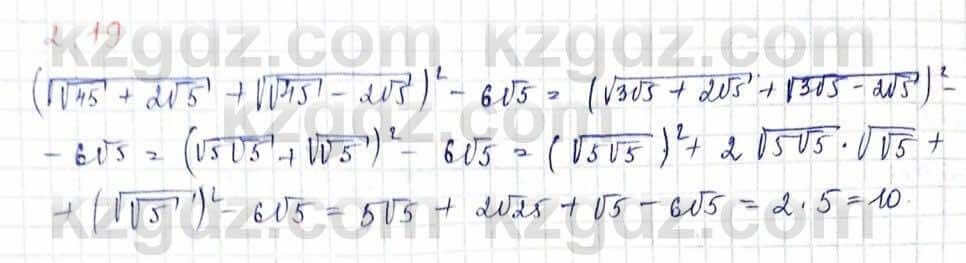 2.19
(√(√45 + 2√5) + √(√45 - 2√5))² - 6√5 = (√(3√5 + 2√5) + √(3√5 - 2√5))² -
- 6√5 = (√(5√5) + √(√5))² - 6√5 = (√(5√5))² + 2√(5√5) · √(√5) +
+ (√(√5))² - 6√5 = 5√5 + 2√25 + √5 - 6√5 = 2 · 5 = 10.
kzgdz.com kzgdz.com
kzgdz.com
kzgdz.com kzgdz.com